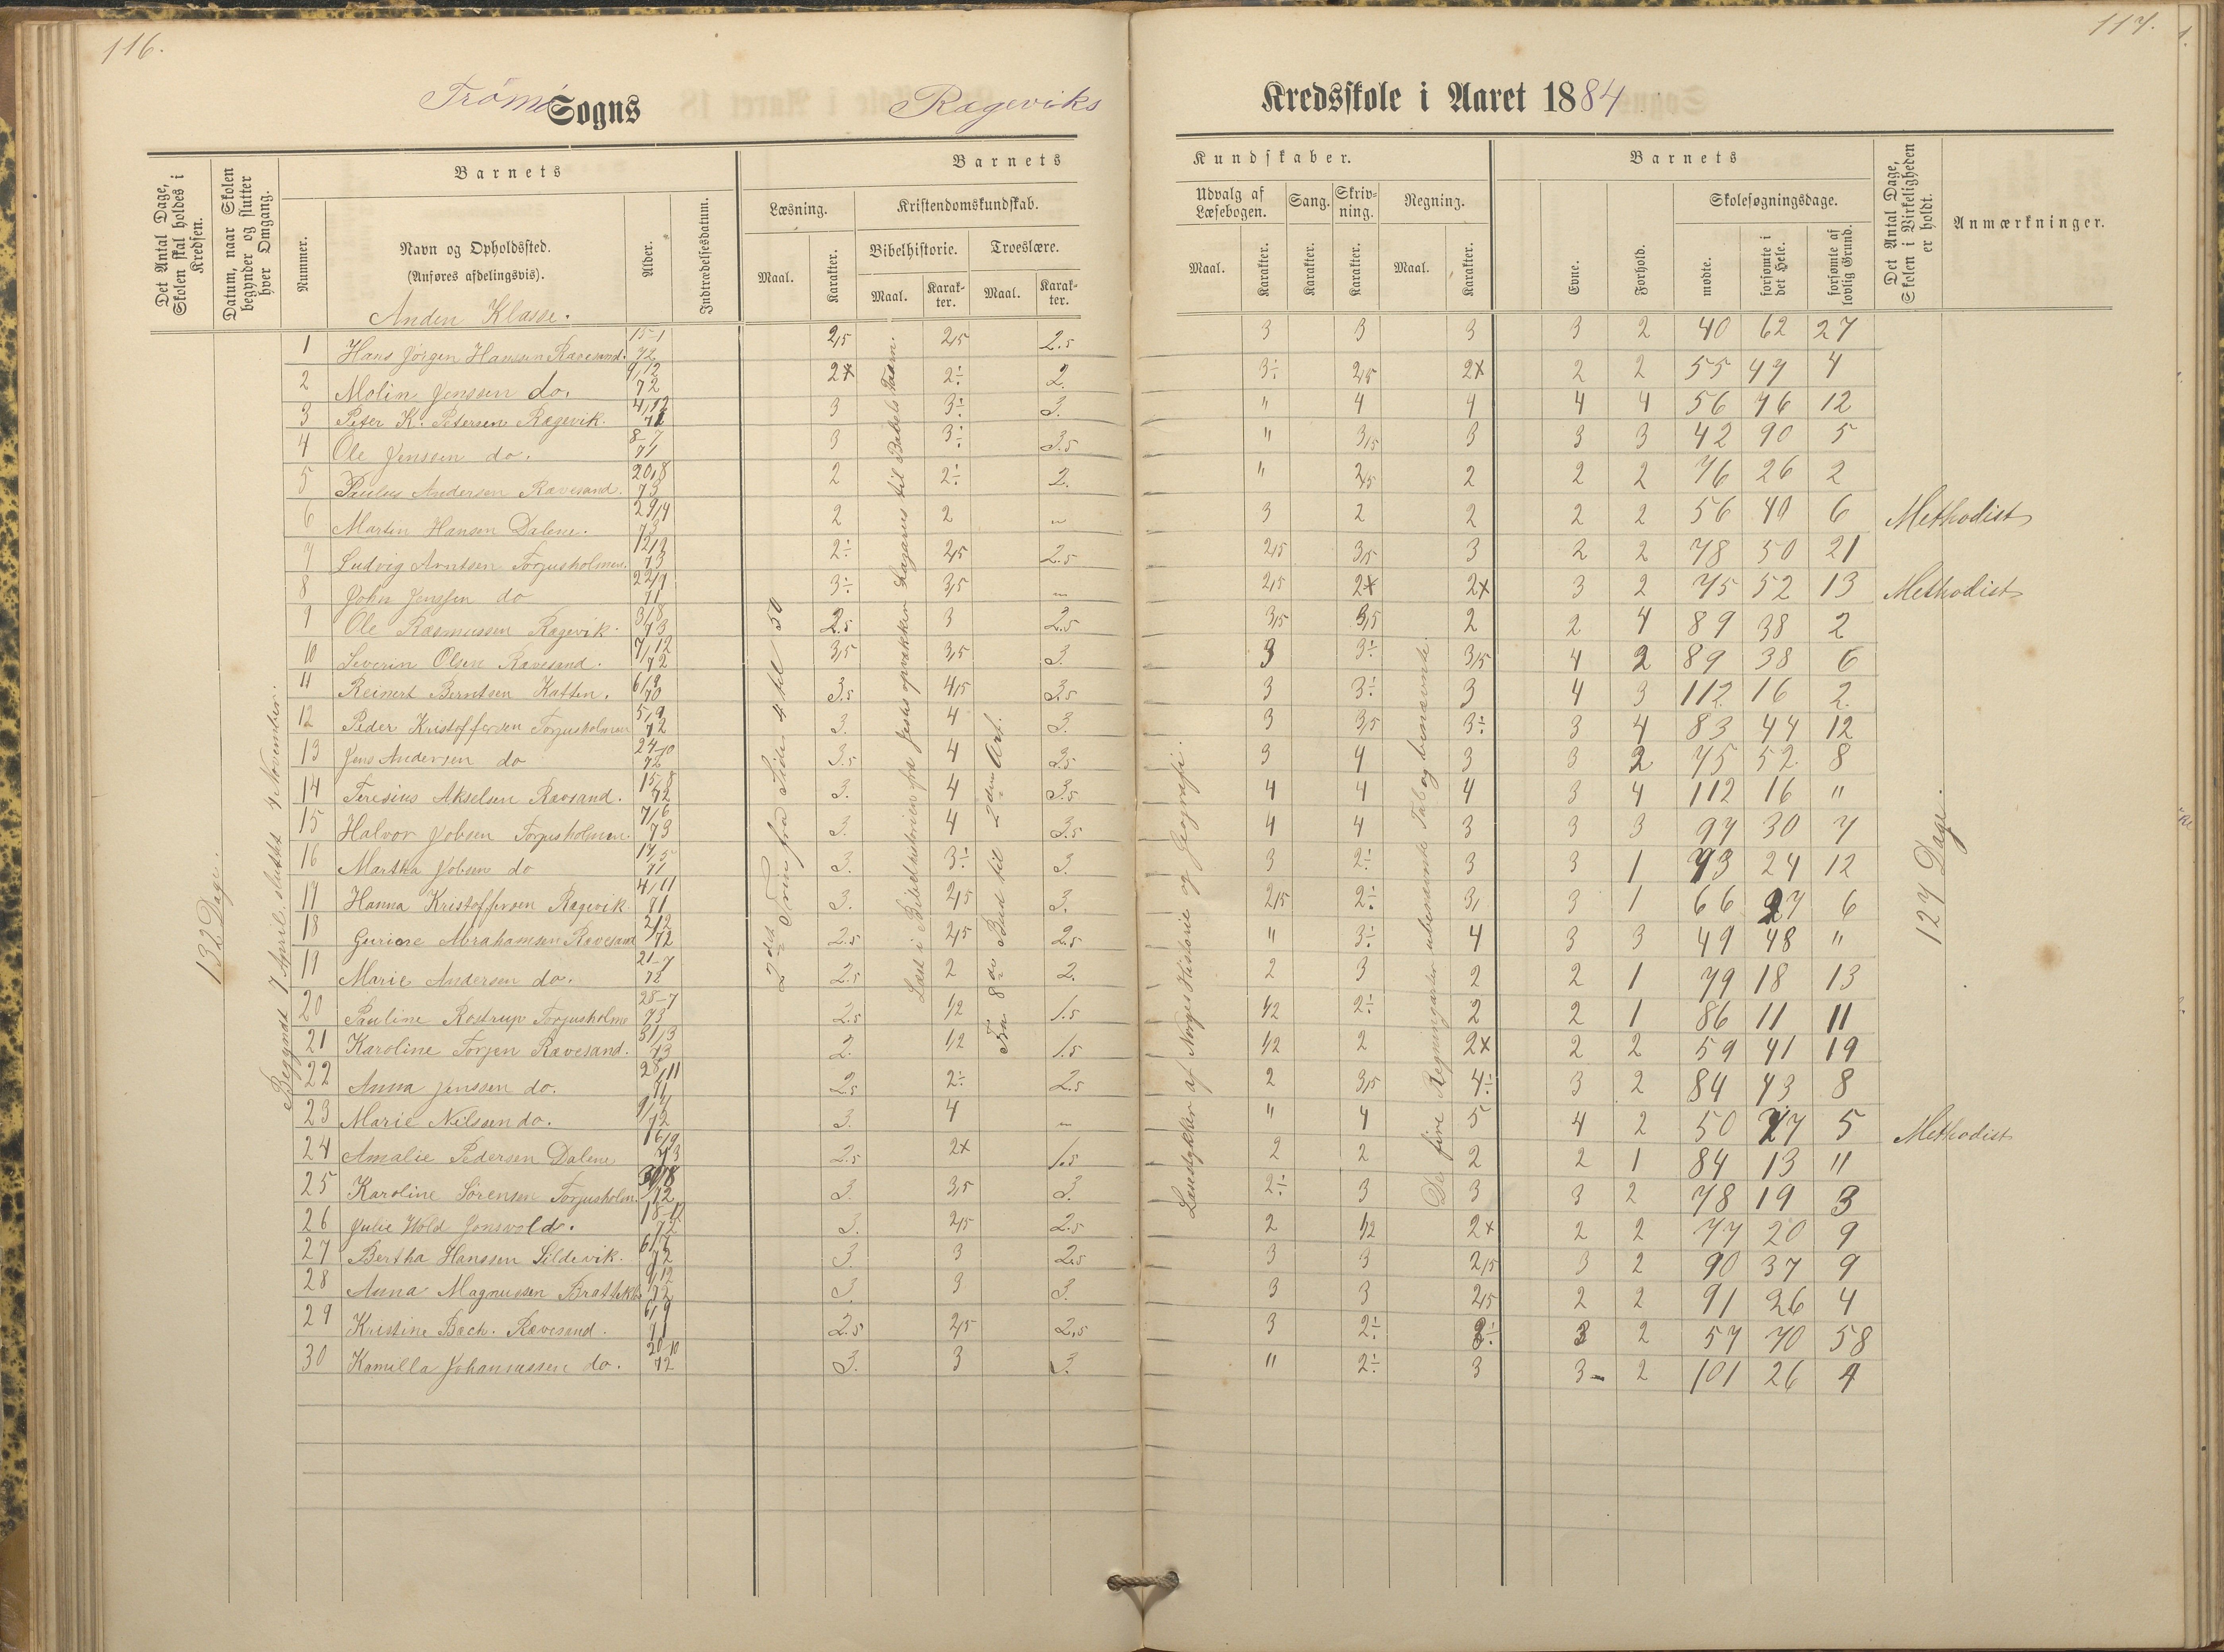 116.
117.
Trömö Sogns
Rageviks
Kredsskole i Aaret 1884
Det Antal Dage, Skolen skal holdes i Kredsen.
Datum, naar Skolen begynder og slutter hver Omgang.
Barnets
Nummer.
Navn og Opholdssted.
(Anføres afdelingsvis).
Alder.
Indtrædelsesdatum.
Barnets
Kundskaber.
Læsning.
Maal.
Karakter.
Kristendomskundskab.
Bibelhistorie.
Maal.
Karakter.
Troeslære.
Maal.
Karakter.
Udvalg af Læsebogen.
Maal.
Karakter.
Sang.
Karakter.
Skrivning.
Karakter.
Regning.
Maal.
Karakter.
Barnets
Evne.
Forhold.
Skolesøgningsdage.
mødte.
forsømte i det Hele.
forsømte af lovlig Grund.
Det Antal Dage, Skolen i Virkeligheden er holdt.
Anmærkninger.
Anden Klasse.
132 Dage.
Begyndt 7 April, sluttet 4 November.
2det Trin fra Side 4 til 50
Læst i Bibelhistorien fra Jesus opvækker Lazarus til Babels Taarn.
Fra 8de Bud til 2den Art.
Læsestykker af Norges Historie og Geografi.
De fire Regningsarter ubenævnte Tal og benævnte.
127 Dage.
1 Hans Jörgen Hanssen Ravesand. 15-1 72 2,5 2,5 2.5 3 3 3 3 2 40 62 27
2 Molin Jenssen do. 9/12 72 2x 2÷ 2. 3÷ 2,5 2x 2 2 55 49 4
3 Peter K. Petersen Ragevik. 4/12 71 3 3÷ 3. " 4 4 4 4 56 46 12
4 Ole Jenssen do. 8-7 71 3 3÷ 3.5 " 3,5 3 3 3 42 90 5
5 Paulus Andersen Ravesand. 20/8 73 2 2÷ 2. " 2,5 2 2 2 76 26 2
6 Martin Hansen Dalene. 29/4 73 2 2 – 3 2 2 2 2 56 40 6 Methodist
7 Ludvig Arntsen Torjusholmen. 12/2 73 2÷ 2,5 2.5 2,5 3,5 3 2 2 78 50 21
8 John Jenssen do 22/1 71 3÷ 3,5 – 2,5 2x 2x 3 2 75 52 13 Methodist
9 Ole Rasmussen Ragevik. 3/8 73 2.5 3 2.5 3,5 3,5 2 2 4 89 38 2
10 Severin Olsen Ravesand. 7/12 72 3,5 3,5 3. 3 3÷ 3,5 4 2 89 38 6
11 Reinert Berntsen Katten. 6/8 70 3.5 4,5 3.5 3 3÷ 3 4 3 112 16 2.
12 Peder Kristoffersen Torjusholmen 5/9 72 3. 4 3. 3 3,5 3÷ 3 4 83 44 12
13 Jens Andersen do 24-10 72 3.5 4 3.5 3 4 3 3 2 75 52 8
14 Teresius Akselsen Ravsand. 15/8 72 3. 4 3.5 4 4 4 3 4 112 16 "
15 Halvor Jobsen Torjusholmen. 7/6 73 3. 4 3.5 4 4 3 3 3 97 30 7
16 Martha Jobsen do 17/5 71 3. 3÷ 3. 3 2÷ 3 3 1 73 24 12
17 Hanna Kristoffersen Ragevik 4/11 71 3. 2,5 3. 2,5 2÷ 3, 3 1 66 27 6
18 Gurine Abrahamsen Ravesand 2/12 72 2.5 2,5 2.5 " 3÷ 4 3 3 49 48 "
19 Marie Andersen do. 21-7 72 2.5 2 2. 2 3 2 2 1 79 18 13
20 Pauline Rostrup Torjusholme 28-7 73 2.5 1/2 1.5 1/2 2÷ 2 2 1 86 11 11
21 Karoline Torjen Ravesand. 31/3 73 2. 1/2 1.5 1/2 2 2x 2 2 59 41 19
22 Anna Jenssen do. 28/11 71 2.5 2÷ 2.5 2 3,5 4÷ 3 2 84 43 8
23 Marie Nilssen do. 9/4 72 3. 4 – " 4 5 4 2 50 77 5 Methodist
24 Amalie Pedersen Dalene 16/9 73 2.5 2x 1.5 2 2 2 2 1 84 13 "
25 Karoline Sörensen Torjusholm. 30/8 72 3. 3,5 3. 2÷ 3 3 3 2 78 19 3
26 Julie Wold Jonsvold. 18-12 72 3. 2,5 2.5 2 1/2 2x 2 2 77 20 9
27 Bertha Hanssen Sildevik. 6/7 72 3. 3 2.5 3 3 2,5 3 2 90 37 9
28 Anna Magnussen Brattekl. 9/12 72 3. 3 3. 3 3 2,5 2 2 91 26 4
29 Kristine Bach. Ravesand. 6/9 71 2.5 2,5 2,5 3 2÷ 3÷ 3 2 57 70 58
30 Kamilla Johannessen do. 20-10 72 3. 3 3. " 2÷ 3 3 2 101 26 4